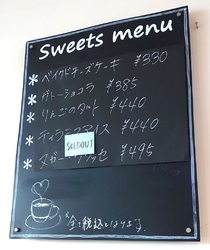 Sweets menu
* ベイクドチーズケーキ ¥330
* ガトーショコラ ¥385
* りんごのタルト ¥440
* ティラミスアイス ¥440
SOLDOUT
* ヌガーグラッセ ¥495
全て税込となります。